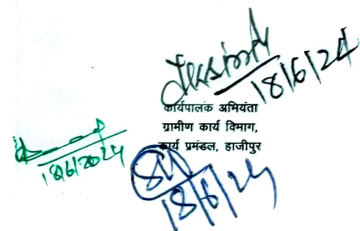 18/6/24
कार्यपालक अभियंता
ग्रामीण कार्य विमाग,
कार्य प्रमंडल, हाजीपुर
18/6/2024
18/6/24